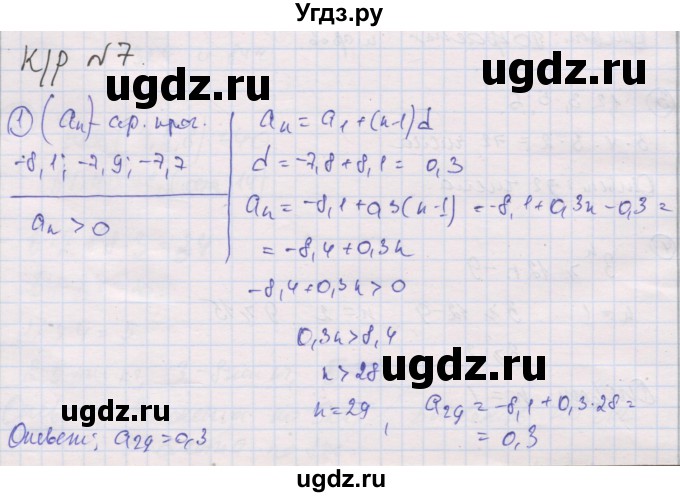 Угдз.ру
К/р №7.
ugdz.ru
ugdz.ru
① (aₙ) - ар. прог.
-8,1; -7,9; -7,7
aₙ > 0
aₙ = a₁ + (n-1)d
d = -7,8 + 8,1 = 0,3
aₙ = -8,1 + 0,3(n-1) = -8,1 + 0,3n - 0,3 =
= -8,4 + 0,3n
ugdz.ru
ugdz.ru
-8,4 + 0,3n > 0
0,3n > 8,4
ugdz.ru
n > 28
n = 29, a₂₉ = -8,1 + 0,3·28 =
= 0,3
ugdz.ru
ugdz.ru
Ответ: a₂₉ = 0,3
ugdz.ru